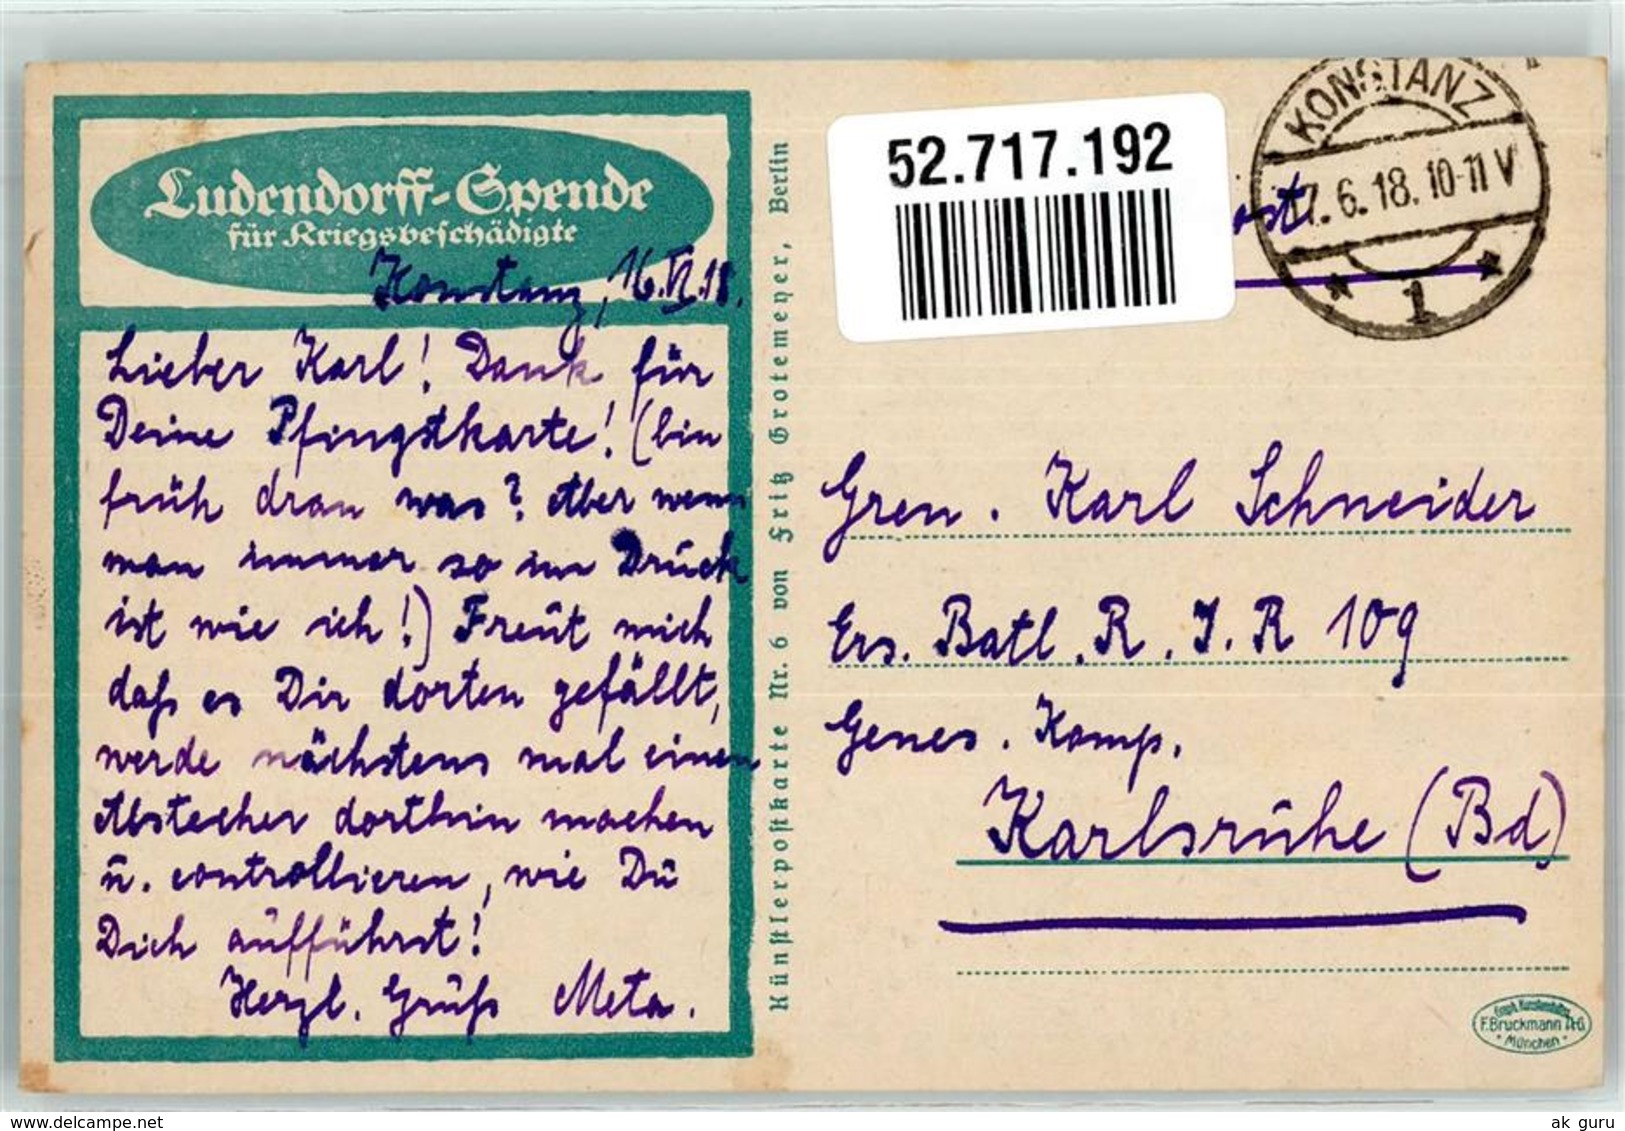 Ludendorff-Spende
für Kriegsbeschädigte
Konstanz, 16.VI.18.
Lieber Karl! Dank für
Deine Pfingstkarte! (bin
früh dran was? Aber wenn
man immer so im Drück
ist wie ich!) Freut mich
daß es Dir dorten gefällt,
werde nächstens mal einen
Abstecher dorthin machen
u. controllieren, wie Du
Dich aufführst!
Herzl. Gruß Meta.
Künstlerpostkarte Nr. 6 von Fritz Grotemeyer, Berlin
52.717.192
ost
KONSTANZ
17.6.18.10-11V
* 1 *
Gren. Karl Schneider
Ers. Batl. R. I. R 109
Genes. Komp.
Karlsruhe (Bd)
Graph. Kunstanstalten
F. Bruckmann A-G
• München •
ak guru